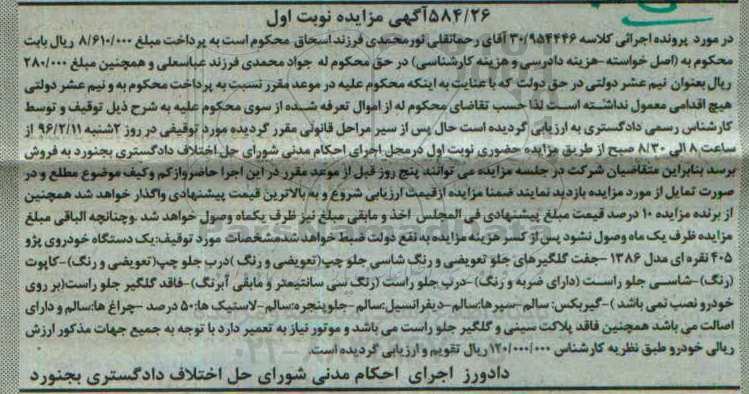 ۵۸۴/۲۶آگهی مزایده نوبت اول
در مورد پرونده اجرائی کلاسه ۳۰/۹۵۴۴۴۶ آقای رحمانقلی نورمحمدی فرزند اسحاق محکوم است به پرداخت مبلغ ۸/۶۱۰/۰۰۰ ریال بابت
محکوم به (اصل خواسته-هزینه دادرسی و هزینه کارشناسی) در حق محکوم له جواد محمدی فرزند عباسعلی و همچنین مبلغ ۲۸۰/۰۰۰
ریال بعنوان نیم عشر دولتی در حق دولت که با عنایت به اینکه محکوم علیه در موعد مقرر نسبت به پرداخت محکوم به و نیم عشر دولتی
هیچ اقدامی معمول نداشته است لذا حسب تقاضای محکوم له از اموال تعرفه شده از سوی محکوم علیه به شرح ذیل توقیف و توسط
کارشناس رسمی دادگستری به ارزیابی گردیده است حال پس از سیر مراحل قانونی مقرر گردیده مورد توقیفی در روز ۲شنبه ۹۶/۲/۱۱ از
ساعت ۸ الی ۸/۳۰ صبح از طریق مزایده حضوری نوبت اول در محل اجرای احکام مدنی شورای حل اختلاف دادگستری بجنورد به فروش
برسد بنابراین متقاضیان شرکت در جلسه مزایده می توانند پنج روز قبل از موعد مقرر در این اجرا حاضر و از کم و کیف موضوع مطلع و در
صورت تمایل از مورد مزایده بازدید نمایند ضمنا مزایده از قیمت ارزیابی شروع و به بالاترین قیمت پیشنهادی واگذار خواهد شد همچنین
از برنده مزایده ۱۰ درصد قیمت مبلغ پیشنهادی فی المجلس اخذ و مابقی مبلغ نیز ظرف یکماه وصول خواهد شد .وچنانچه الباقی مبلغ
مزایده ظرف یک ماه وصول نشود پس از کسر هزینه مزایده به نفع دولت ضبط خواهد شد.مشخصات مورد توقیف:یک دستگاه خودروی پژو
۴۰۵ نقره ای مدل ۱۳۸۶ -جفت گلگیرهای جلو تعویضی و رنگ شاسی جلو چپ(تعویضی و رنگ )درب جلو چپ(تعویضی و رنگ)-کاپوت
(رنگ)-شاسی جلو راست (دارای ضربه و رنگ)-درب جلو راست (رنگ سی سانتیمتر و مابقی آبرنگ)-فاقد گلگیر جلو راست(بر روی
خودرو نصب نمی باشد )-گیربکس: سالم-سپرها:سالم-دیفرانسیل:سالم-جلوپنجره:سالم-لاستیک ها:۵۰ درصد -چراغ ها:سالم و دارای
اصالت می باشد همچنین فاقد پلاکت سینی و گلگیر جلو راست می باشد و موتور نیاز به تعمیر دارد با توجه به جمیع جهات مذکور ارزش
ریالی خودرو طبق نظریه کارشناس ۱۲۰/۰۰۰/۰۰۰ریال تقویم و ارزیابی گردیده است.
دادورز اجرای احکام مدنی شورای حل اختلاف دادگستری بجنورد